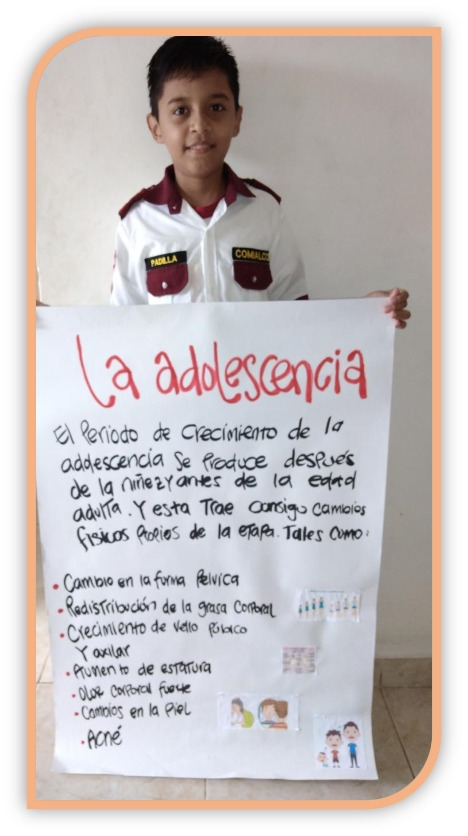 PADILLA
COMIALCO
La adolescencia
El Periodo de Crecimiento de la
adolescencia Se Produce después
de la niñez y antes de la edad
adulta. Y esta Trae consigo cambios
físicos Propios de la etapa. Tales Como:
• Cambio en la forma Pélvica
• Redistribución de la grasa Corporal
• Crecimiento de Vello Púbico
Y axilar
• Aumento de estatura
• Olor Corporal fuerte
• Cambios en la Piel
• Acné